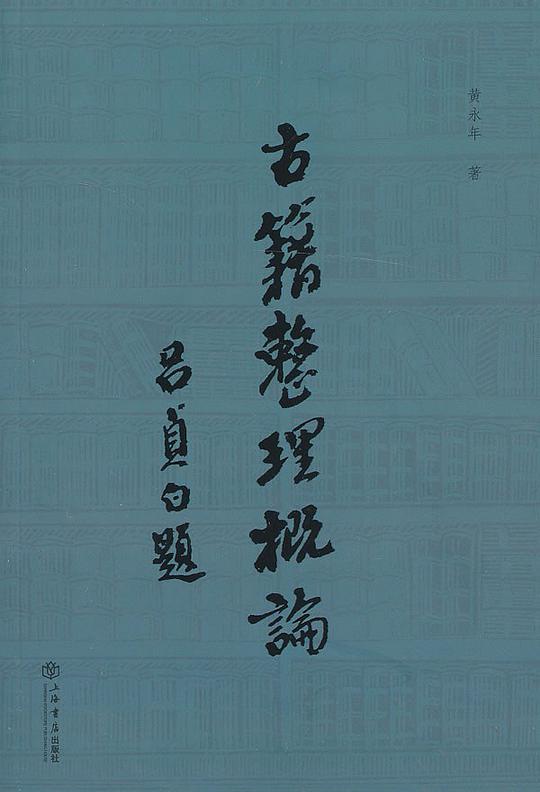 黄永年 著
古籍整理概論
呂貞白題
上海書店出版社